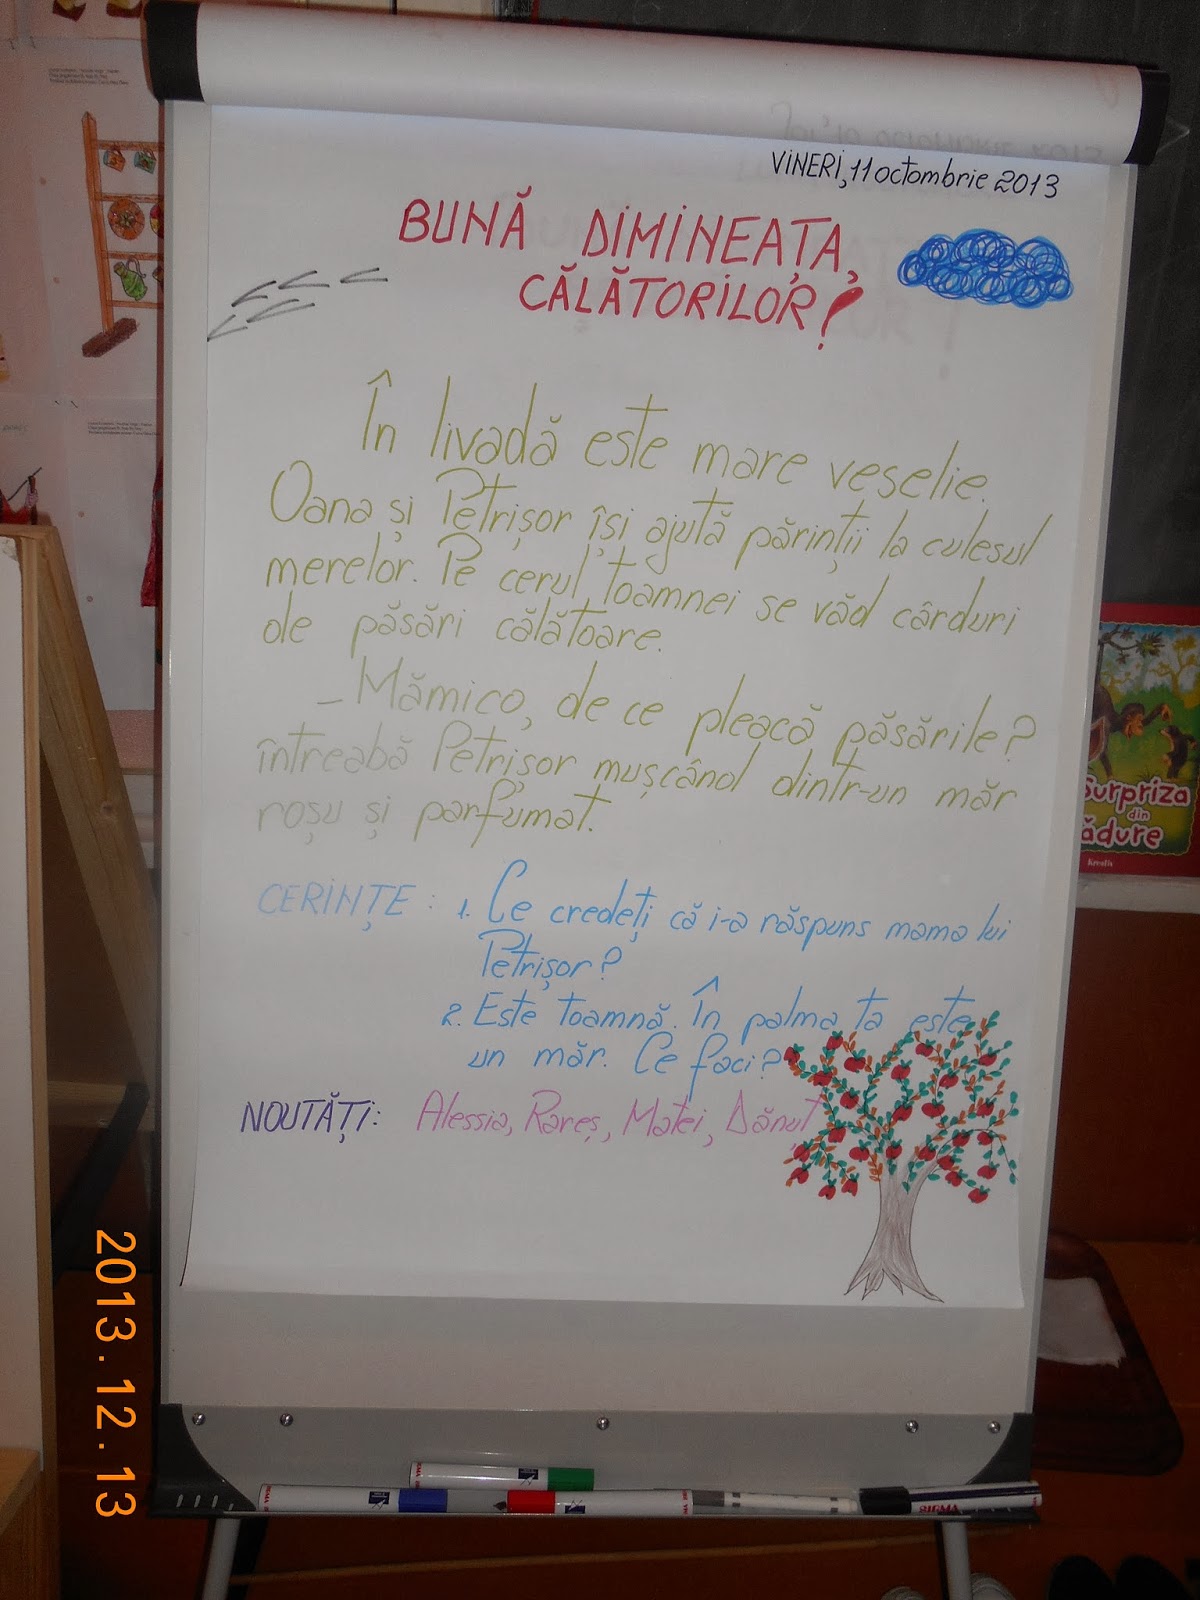 VINERI, 11 octombrie 2013
BUNĂ DIMINEAȚA,
CĂLĂTORILOR!
În livadă este mare veselie.
Oana și Petrișor își ajută părinții la culesul
merelor. Pe cerul toamnei se văd cârduri
de păsări călătoare.
– Mămico, de ce pleacă păsările?
întreabă Petrișor mușcând dintr-un măr
roșu și parfumat.
CERINȚE : 1. Ce credeți că i-a răspuns mama lui
Petrișor?
2. Este toamnă. În palma ta este
un măr. Ce faci?
NOUTĂȚI: Alessia, Rareș, Matei, Dănuț
Surpriza
din
ădure
Kreativ
2013.12.13
SIGMA